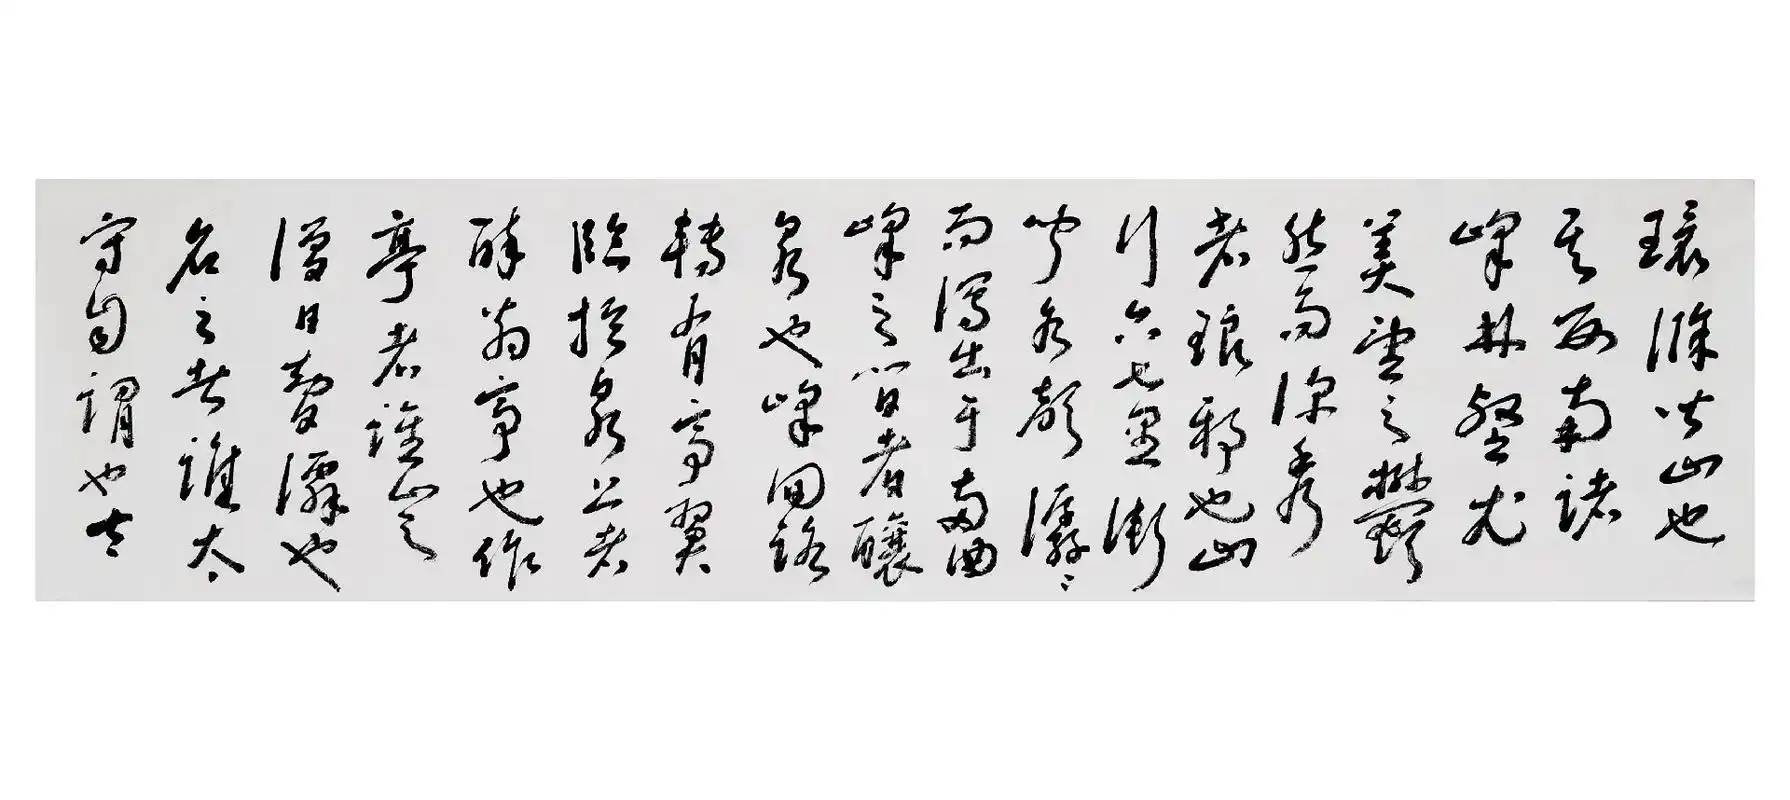 環滁皆山也
其西南諸
峰林壑尤
美望之鬱
然而深秀
者琅邪也山
行六七里漸
聞水聲潺々
而瀉出于兩
峰之間者釀
泉也峰回路
轉有亭翼
臨於泉上者
醉翁亭也作
亭者誰山之
僧曰智僊也
名之者誰太
守自謂也